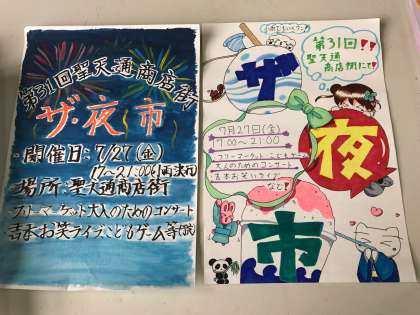 第31回聖天通商店街
ザ・夜市
・開催日:7/27(金)
17~21:00
場所:聖天通商店街
フリーマーケット大人のためのコンサート
吉本お笑いライブこどもゲーム等
第31回!!
聖天通
商店街にて!
ザ
夜
市
7月27日(金)
17:00~21:00
フリーマーケット
大人のためのコンサート
吉本お笑いライブ
など!